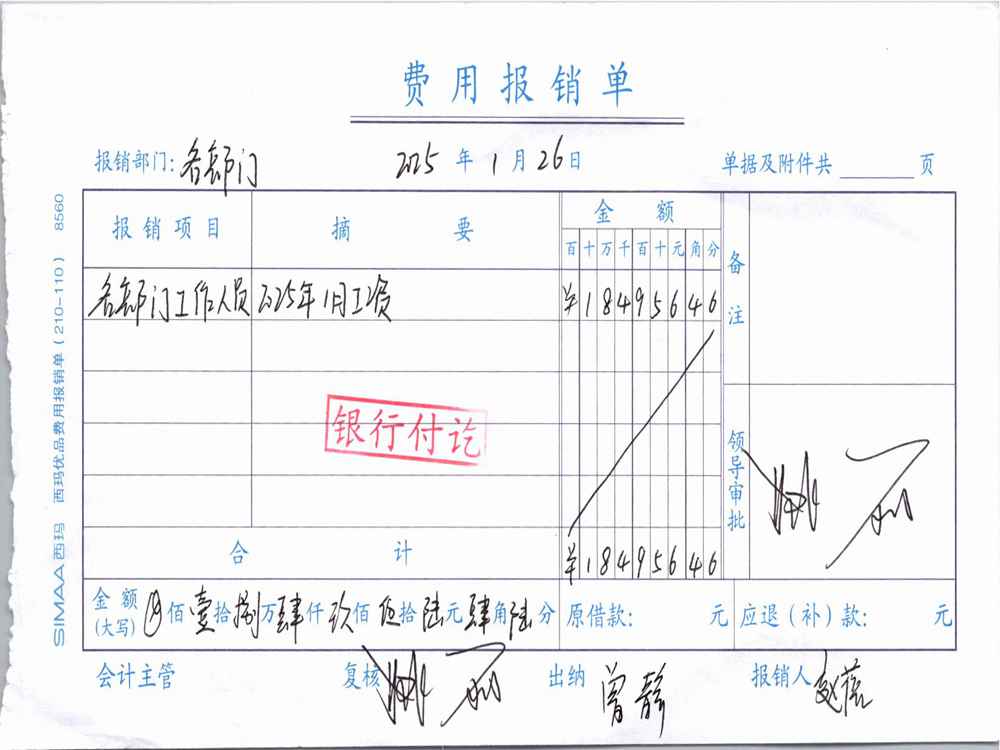 费用报销单
报销部门: 各部门 2025 年 1 月 26 日 单据及附件共 页
报销项目 摘要 金额 备注
百 十 万 千 百 十 元 角 分
各部门工作人员 2025年1月工资 ¥ 1 8 4 9 5 6 4 6
银行付讫
领导审批
合计 ¥ 1 8 4 9 5 6 4 6
金额(大写) 佰 壹 拾 捌 万 肆 仟 玖 佰 伍 拾 陆 元 肆 角 陆 分 原借款: 元 应退(补)款: 元
会计主管 复核 出纳 曾静 报销人
SIMAA 西玛 西玛优品费用报销单(210-110) 8560